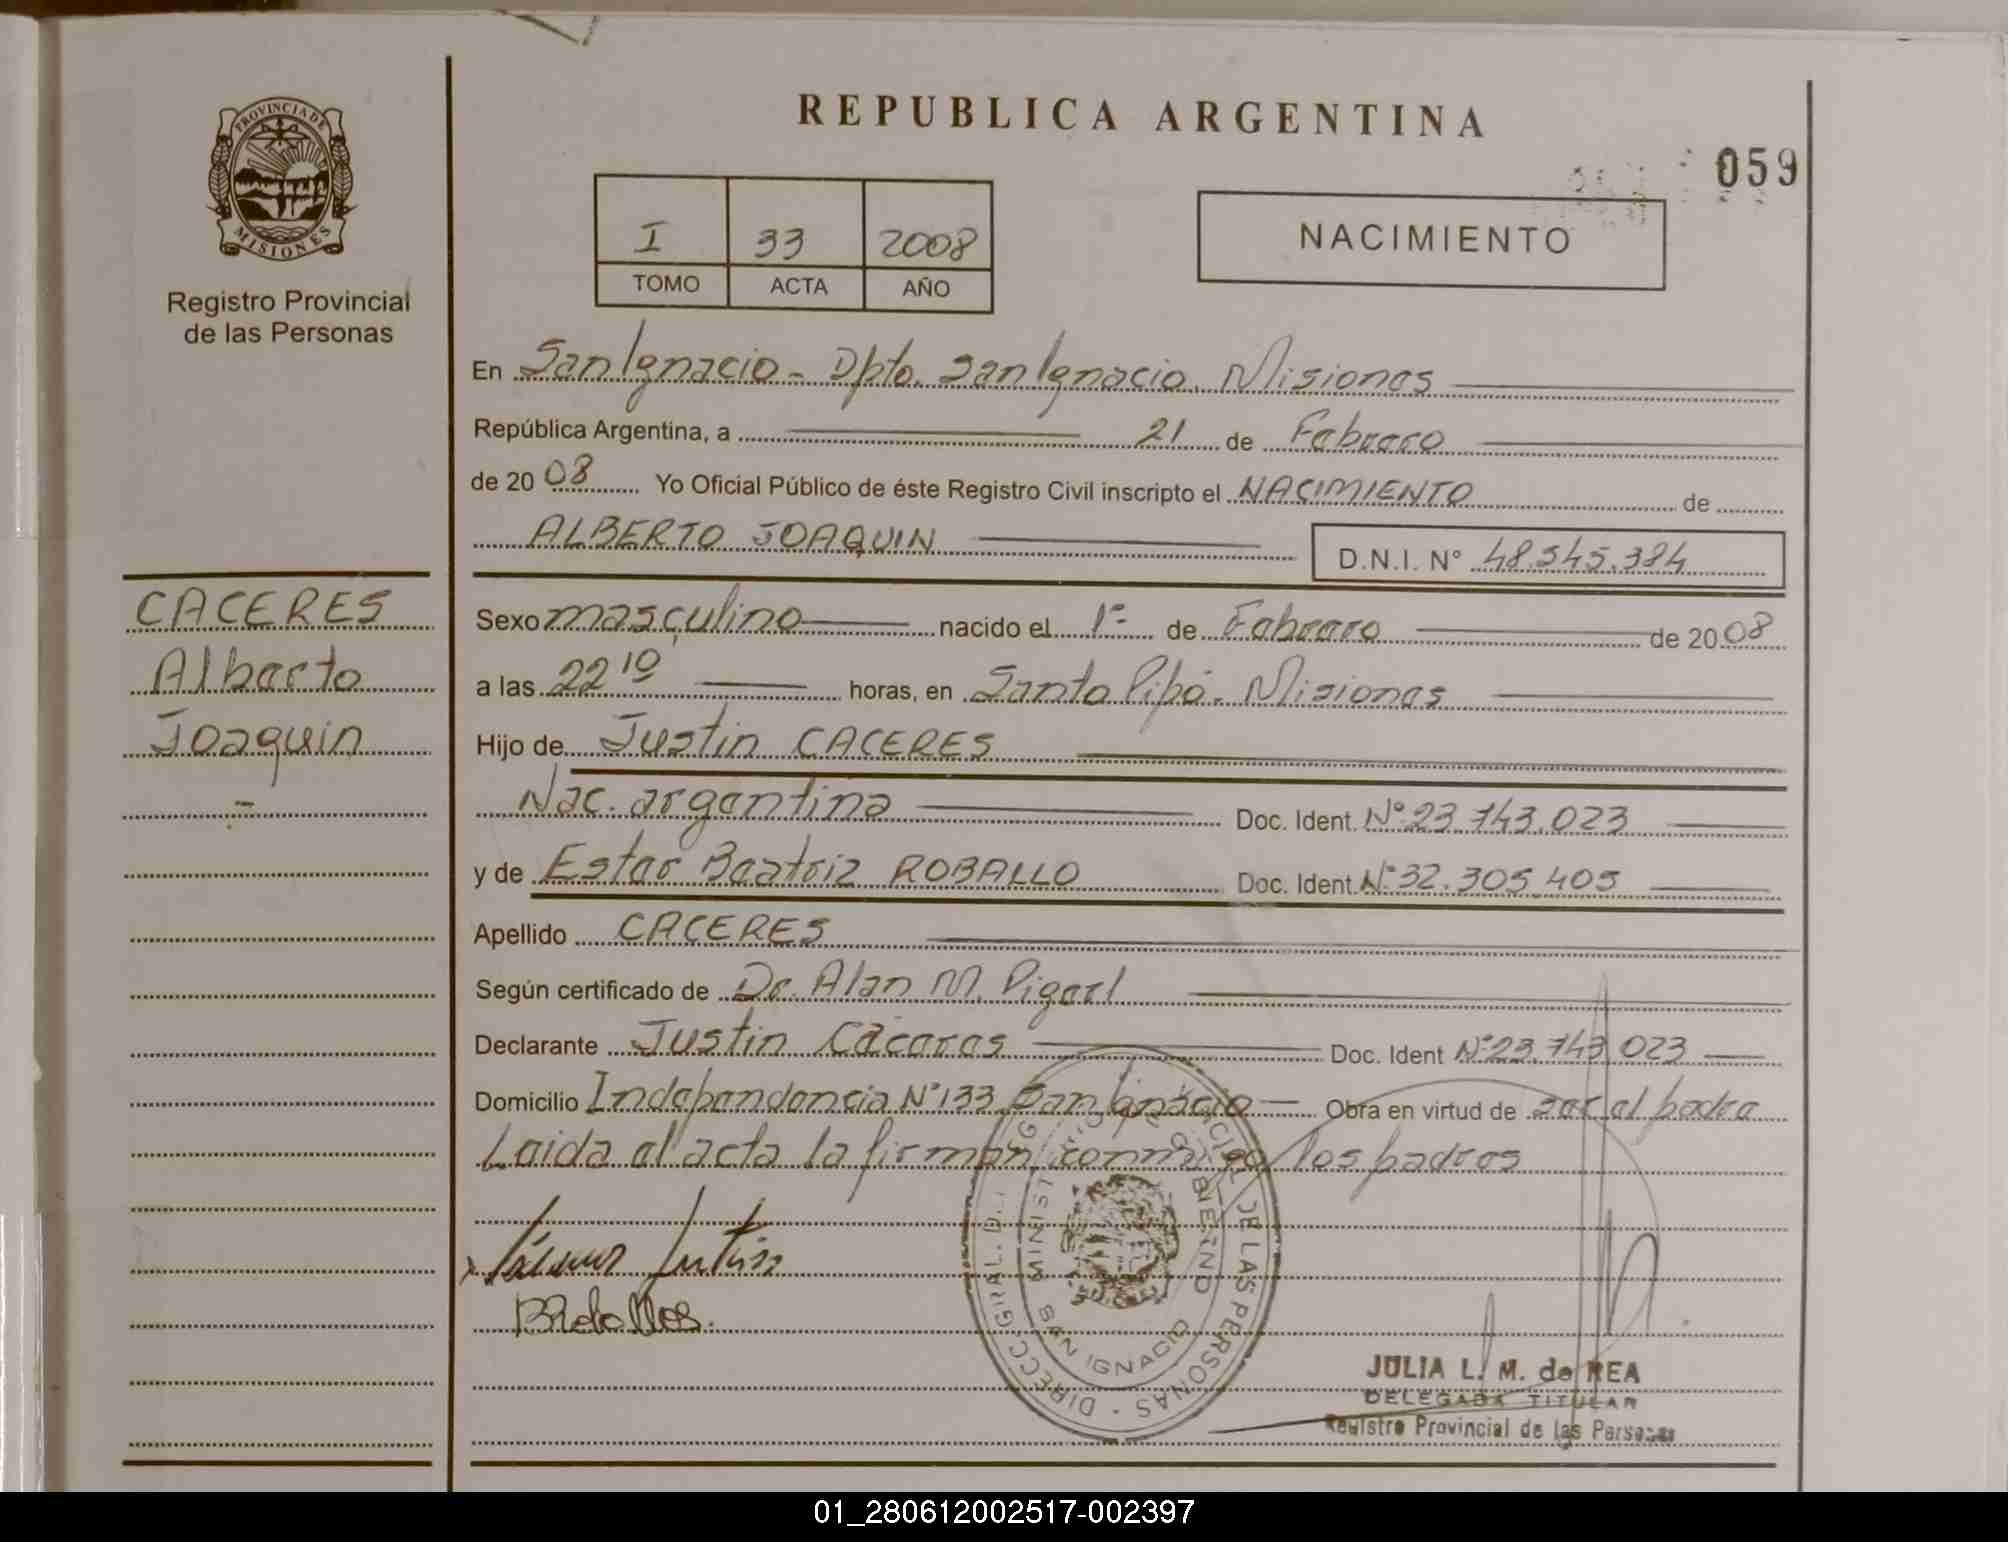 REPUBLICA ARGENTINA
059
PROVINCIA DE MISIONES
Registro Provincial
de las Personas
I 33 2008
TOMO ACTA AÑO
NACIMIENTO
En San Ignacio - Dpto. San Ignacio. Misiones
República Argentina, a 21 de Febrero
de 2008 Yo Oficial Público de éste Registro Civil inscripto el NACIMIENTO de
ALBERTO JOAQUIN D.N.I. N° 48.345.384
CACERES
Alberto
Joaquin
Sexo masculino nacido el 1° de Febrero de 2008
a las 22 10 horas, en Santo Pipó - Misiones
Hijo de Justin CACERES
Nac. argentina Doc. Ident. N° 23.743.023
y de Ester Beatriz ROBALLO Doc. Ident. N° 32.305.405
Apellido CACERES
Según certificado de Dr. Alan M.
Declarante Justin Cáceres Doc. Ident N° 23.743.023
Domicilio Independencia N° 133 San Ignacio Obra en virtud de ser el padre
Leida el acta la firman conmigo los padres
DIRECC. GRAL. DEL REG. PROVINCIAL DE LAS PERSONAS
MINISTERIO DE GOBIERNO
SAN IGNACIO
JULIA L. M. de REA
DELEGADA TITULAR
Registro Provincial de las Personas
01_280612002517-002397